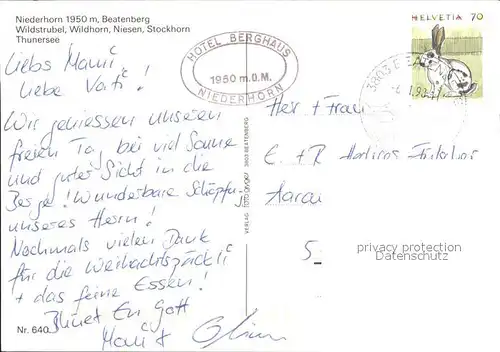 Niederhorn 1950 m, Beatenberg
Wildstrubel, Wildhorn, Niesen, Stockhorn
Thunersee
Liebs Mami,
liebe Vati!
Wir geniessen unseren
freien Tag bei viel Sonne
und guter Sicht in die
Berge! Wunderbare Schöpfung
unseres Herrn!
Nochmals vielen Dank
für die Weihnachtspäckli
+ das feine Essen!
Bhüet Eu Gott
Nr. 640
HOTEL BERGHAUS
1950 m.ü.M.
NIEDERHORN
VERLAG FOTO 3803 BEATENBERG
HELVETIA 70
3803 BEATENBERG
Herr + Frau
E. + R.
Aarau
5
privacy protection
DOMAINS